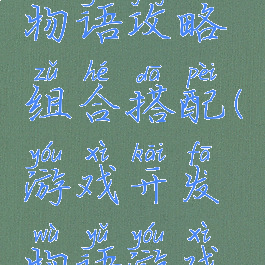 物语攻略
zǔ hé dā pèi
组合搭配(
yóu xì kāi fā
游戏开发
wù yǔ yóu xì
物语游戏